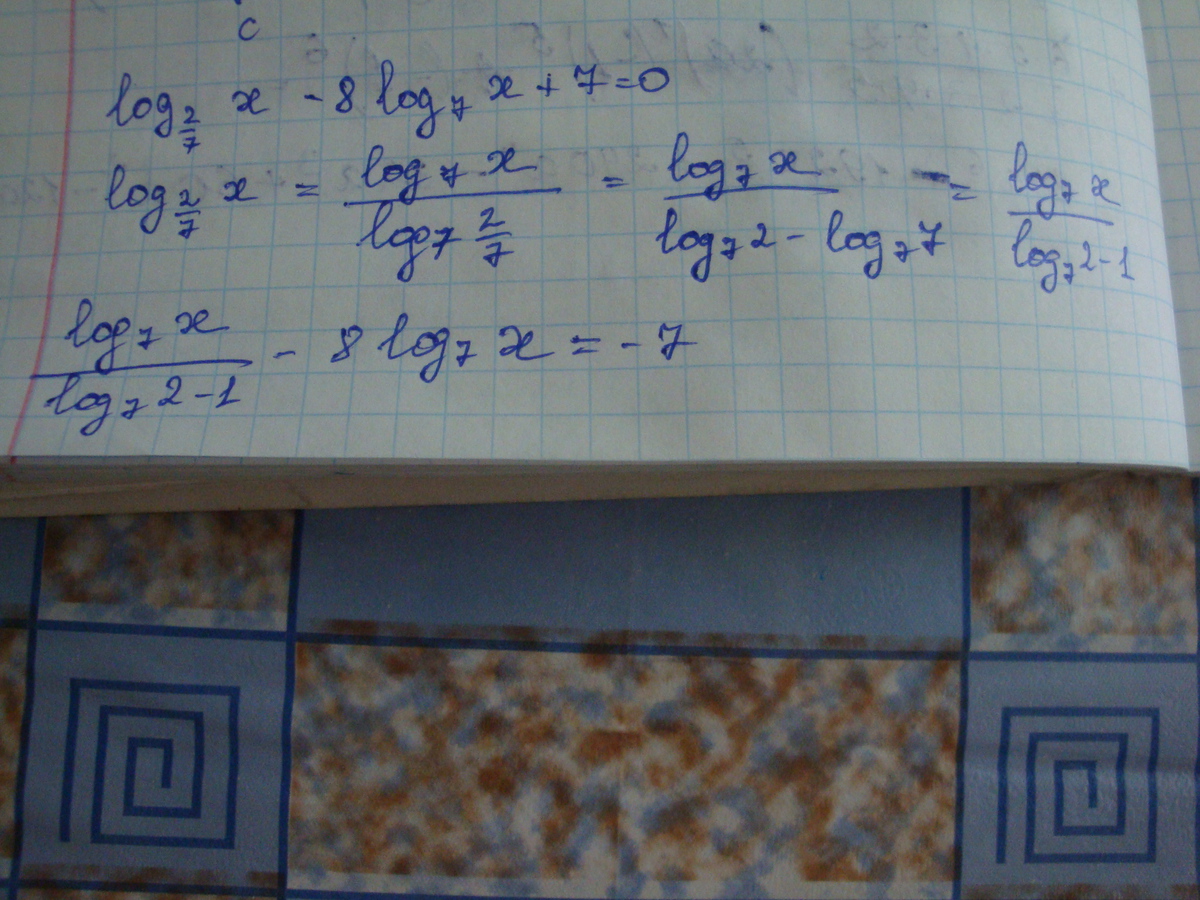 c
log_{2/7} x - 8 log_7 x + 7 = 0
log_{2/7} x = \frac{log_7 x}{log_7 \frac{2}{7}} = \frac{log_7 x}{log_7 2 - log_7 7} = \frac{log_7 x}{log_7 2 - 1}
\frac{log_7 x}{log_7 2 - 1} - 8 log_7 x = -7